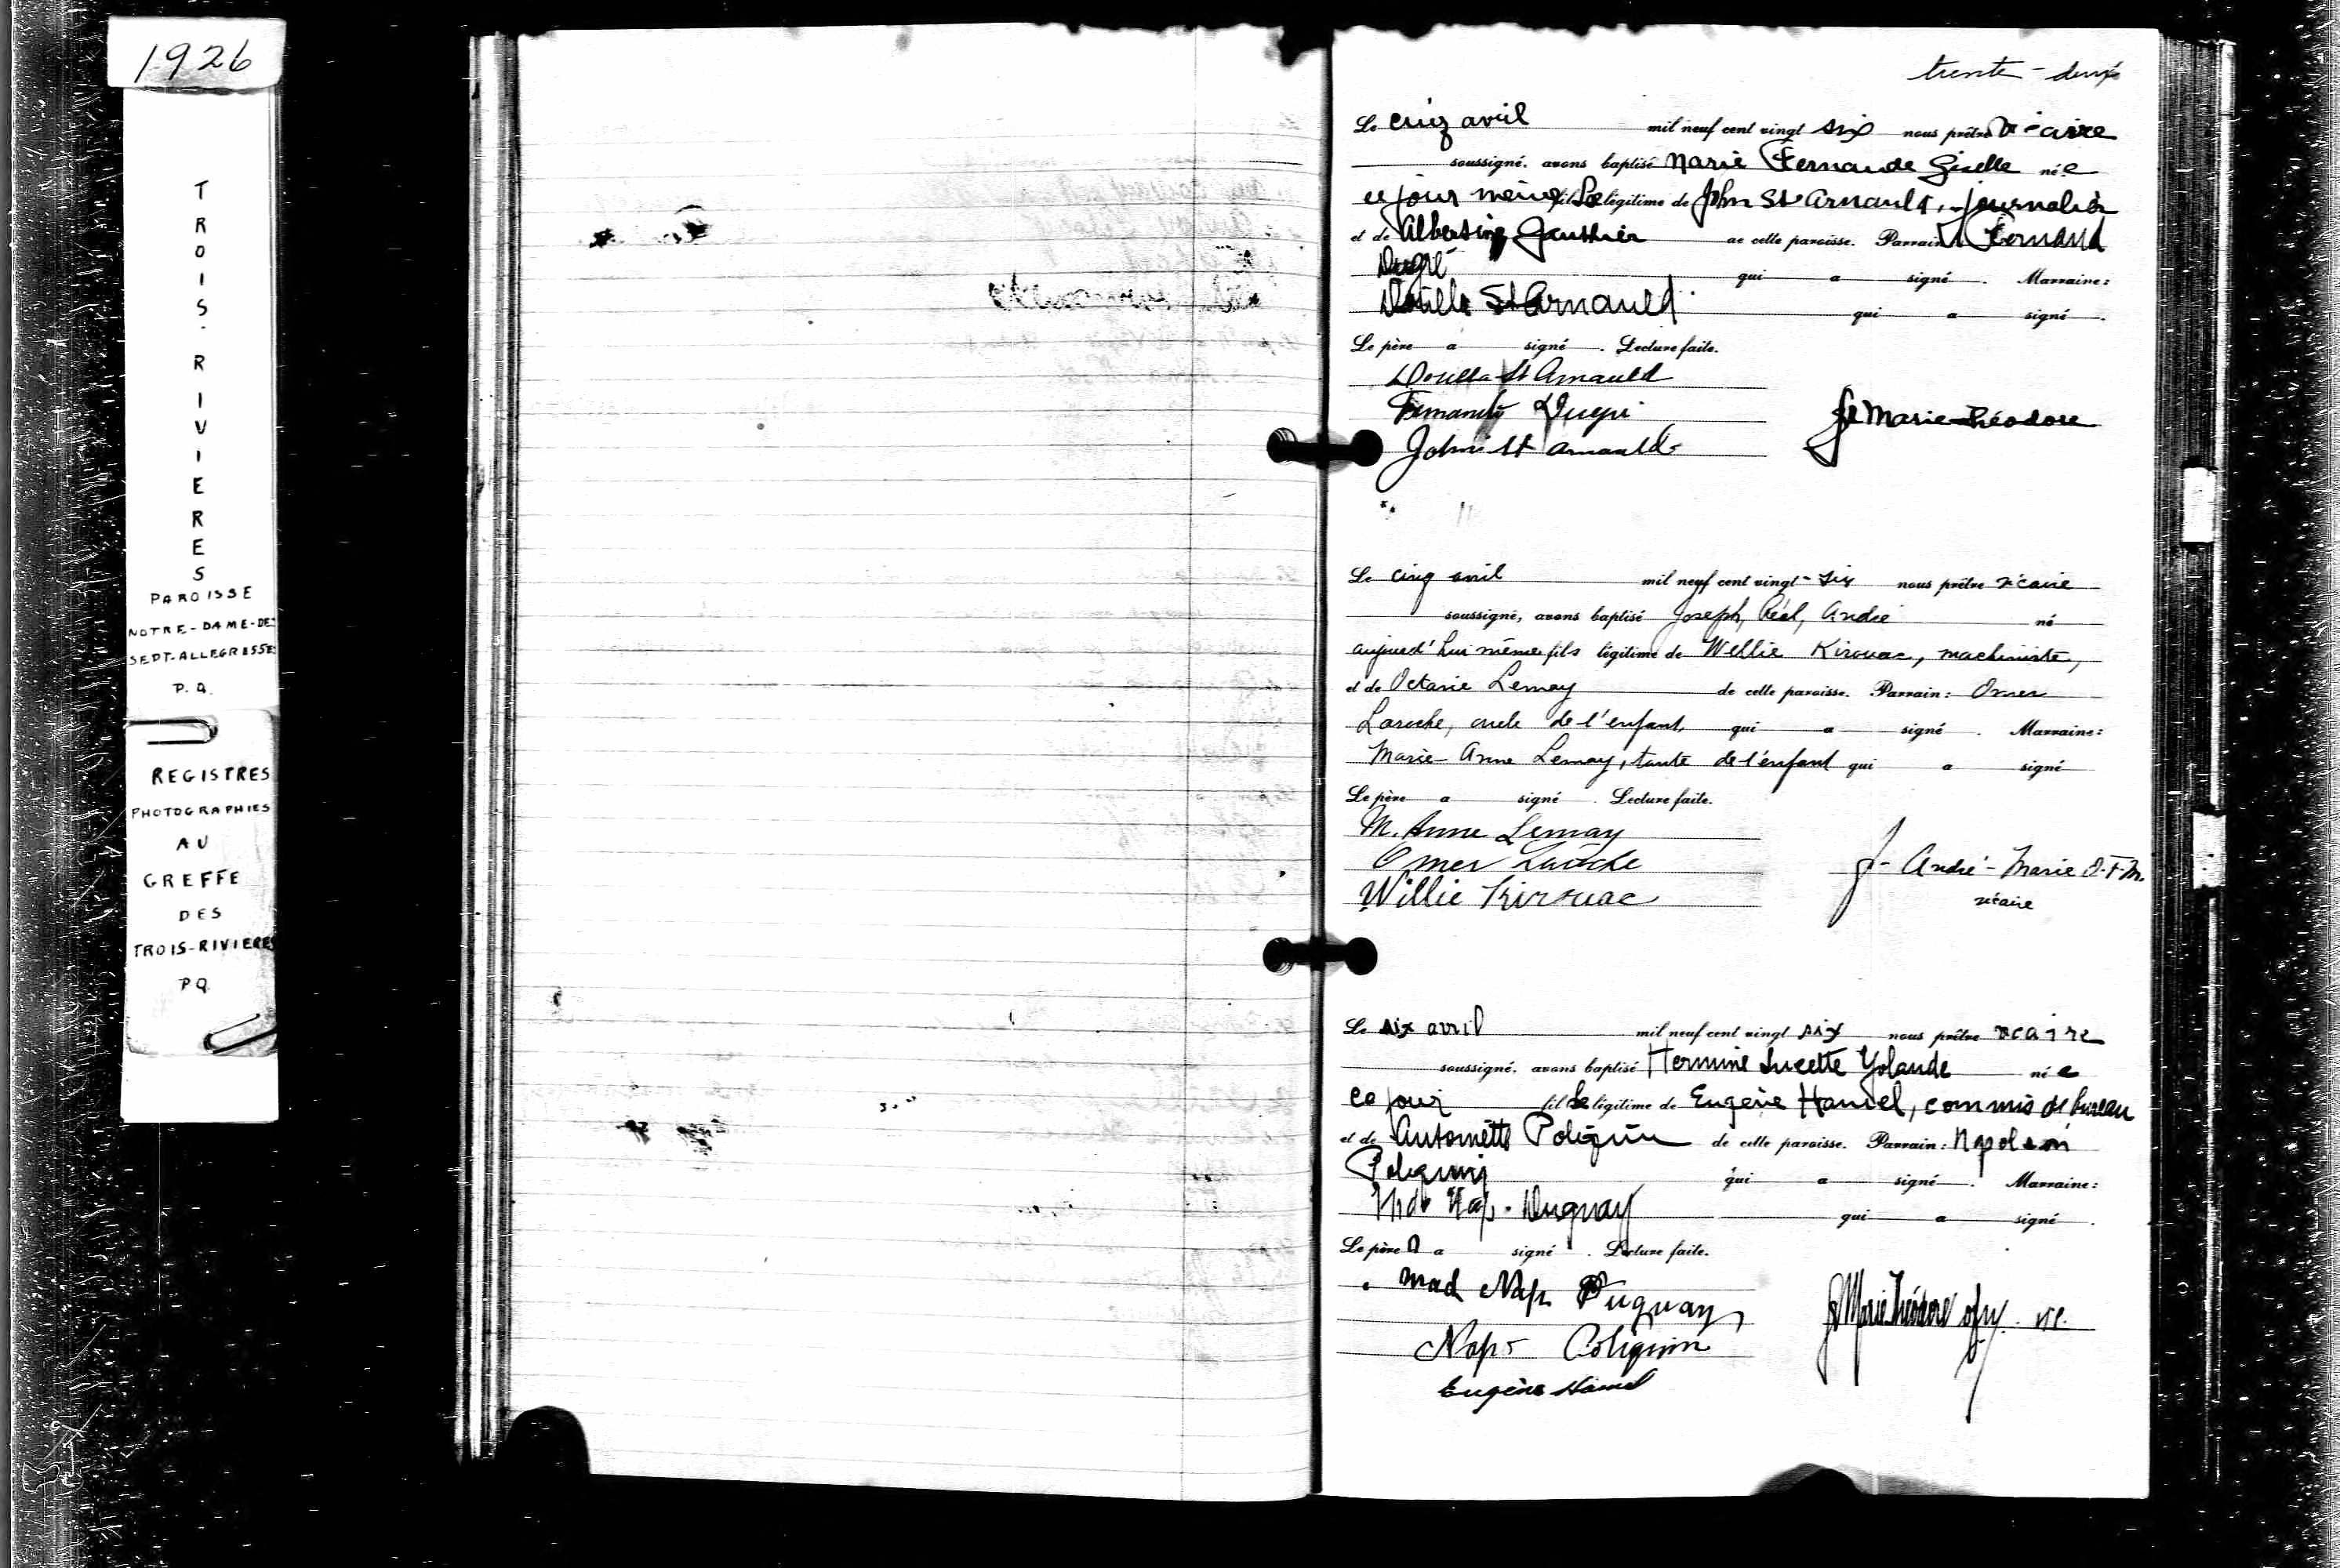 1926
TROIS-RIVIERES
PAROISSE
NOTRE-DAME-DES
SEPT-ALLEGRESSES
P.Q.
REGISTRES
PHOTOGRAPHIES
AU
GREFFE
DES
TROIS-RIVIERES
P.Q.
trente-deux
Le cinq avril mil neuf cent vingt six nous prêtre vicaire
soussigné, avons baptisé Marie Fernande Giselle née
ce jour même fille légitime de John St Arnauld, journalier
et de Albertine Gauthier de cette paroisse. Parrain: Fernand
Dugré qui a signé. Marraine:
St Arnauld qui a signé.
Le père a signé. Lecture faite.
St Arnauld
John St Arnauld
fr Marie-Théodore
Le cinq avril mil neuf cent vingt-six nous prêtre vicaire
soussigné, avons baptisé Joseph, Réal, André né
aujourd'hui même fils légitime de Willie Kirouac, machiniste,
et de Octavie Lemay de cette paroisse. Parrain: Omer
Laroche, oncle de l'enfant, qui a signé. Marraine:
Marie-Anne Lemay, tante de l'enfant qui a signé
Le père a signé. Lecture faite.
M. Anne Lemay
Omer Laroche
Willie Kirouac
f- André-Marie O.F.M.
vicaire
Le six avril mil neuf cent vingt six nous prêtre vicaire
soussigné, avons baptisé Hermine Lucette Yolande née
ce jour fille légitime de Eugène Hamel, commis de bureau
et de Antoinette Poliquin de cette paroisse. Parrain: Napoléon
Poliquin qui a signé. Marraine:
Mde Nap. Duguay qui a signé.
Le père a signé. Lecture faite.
Mad Nap Duguay
Nap Poliquin
Eugène Hamel
fr Marie Théodore ofm. vic.